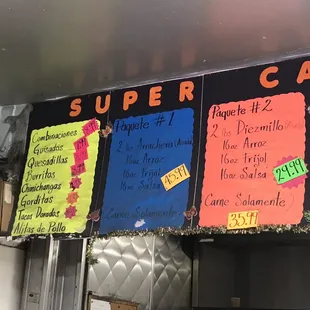 SUPER CA
Combinaciones
Guisadas
Quesadillas
Burritos
Chimichangas
Gorditas
Tacos Dorados
Alitas de Pollo
Paquete #1
2 lbs Arrachera
16oz Arroz
16oz Frijol
16oz Salsa
Carne Solamente
Paquete #2
2 lbs Diezmillo
16oz Arroz
16oz Frijol
16oz Salsa
29.99
Carne Solamente
35.99